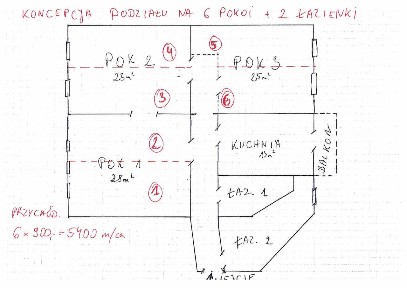 KONCEPCJA PODZIAŁU NA 6 POKOI + 2 ŁAZIENKI
4
5
POK 2
POK 3
3
6
2
KUCHNIA
BALKON
POK 1
28m²
1
ŁAZ. 1
PRZYCHÓD:
ŁAZ. 2
6 × 900,- = 5400 m/ca
WEJŚCIE